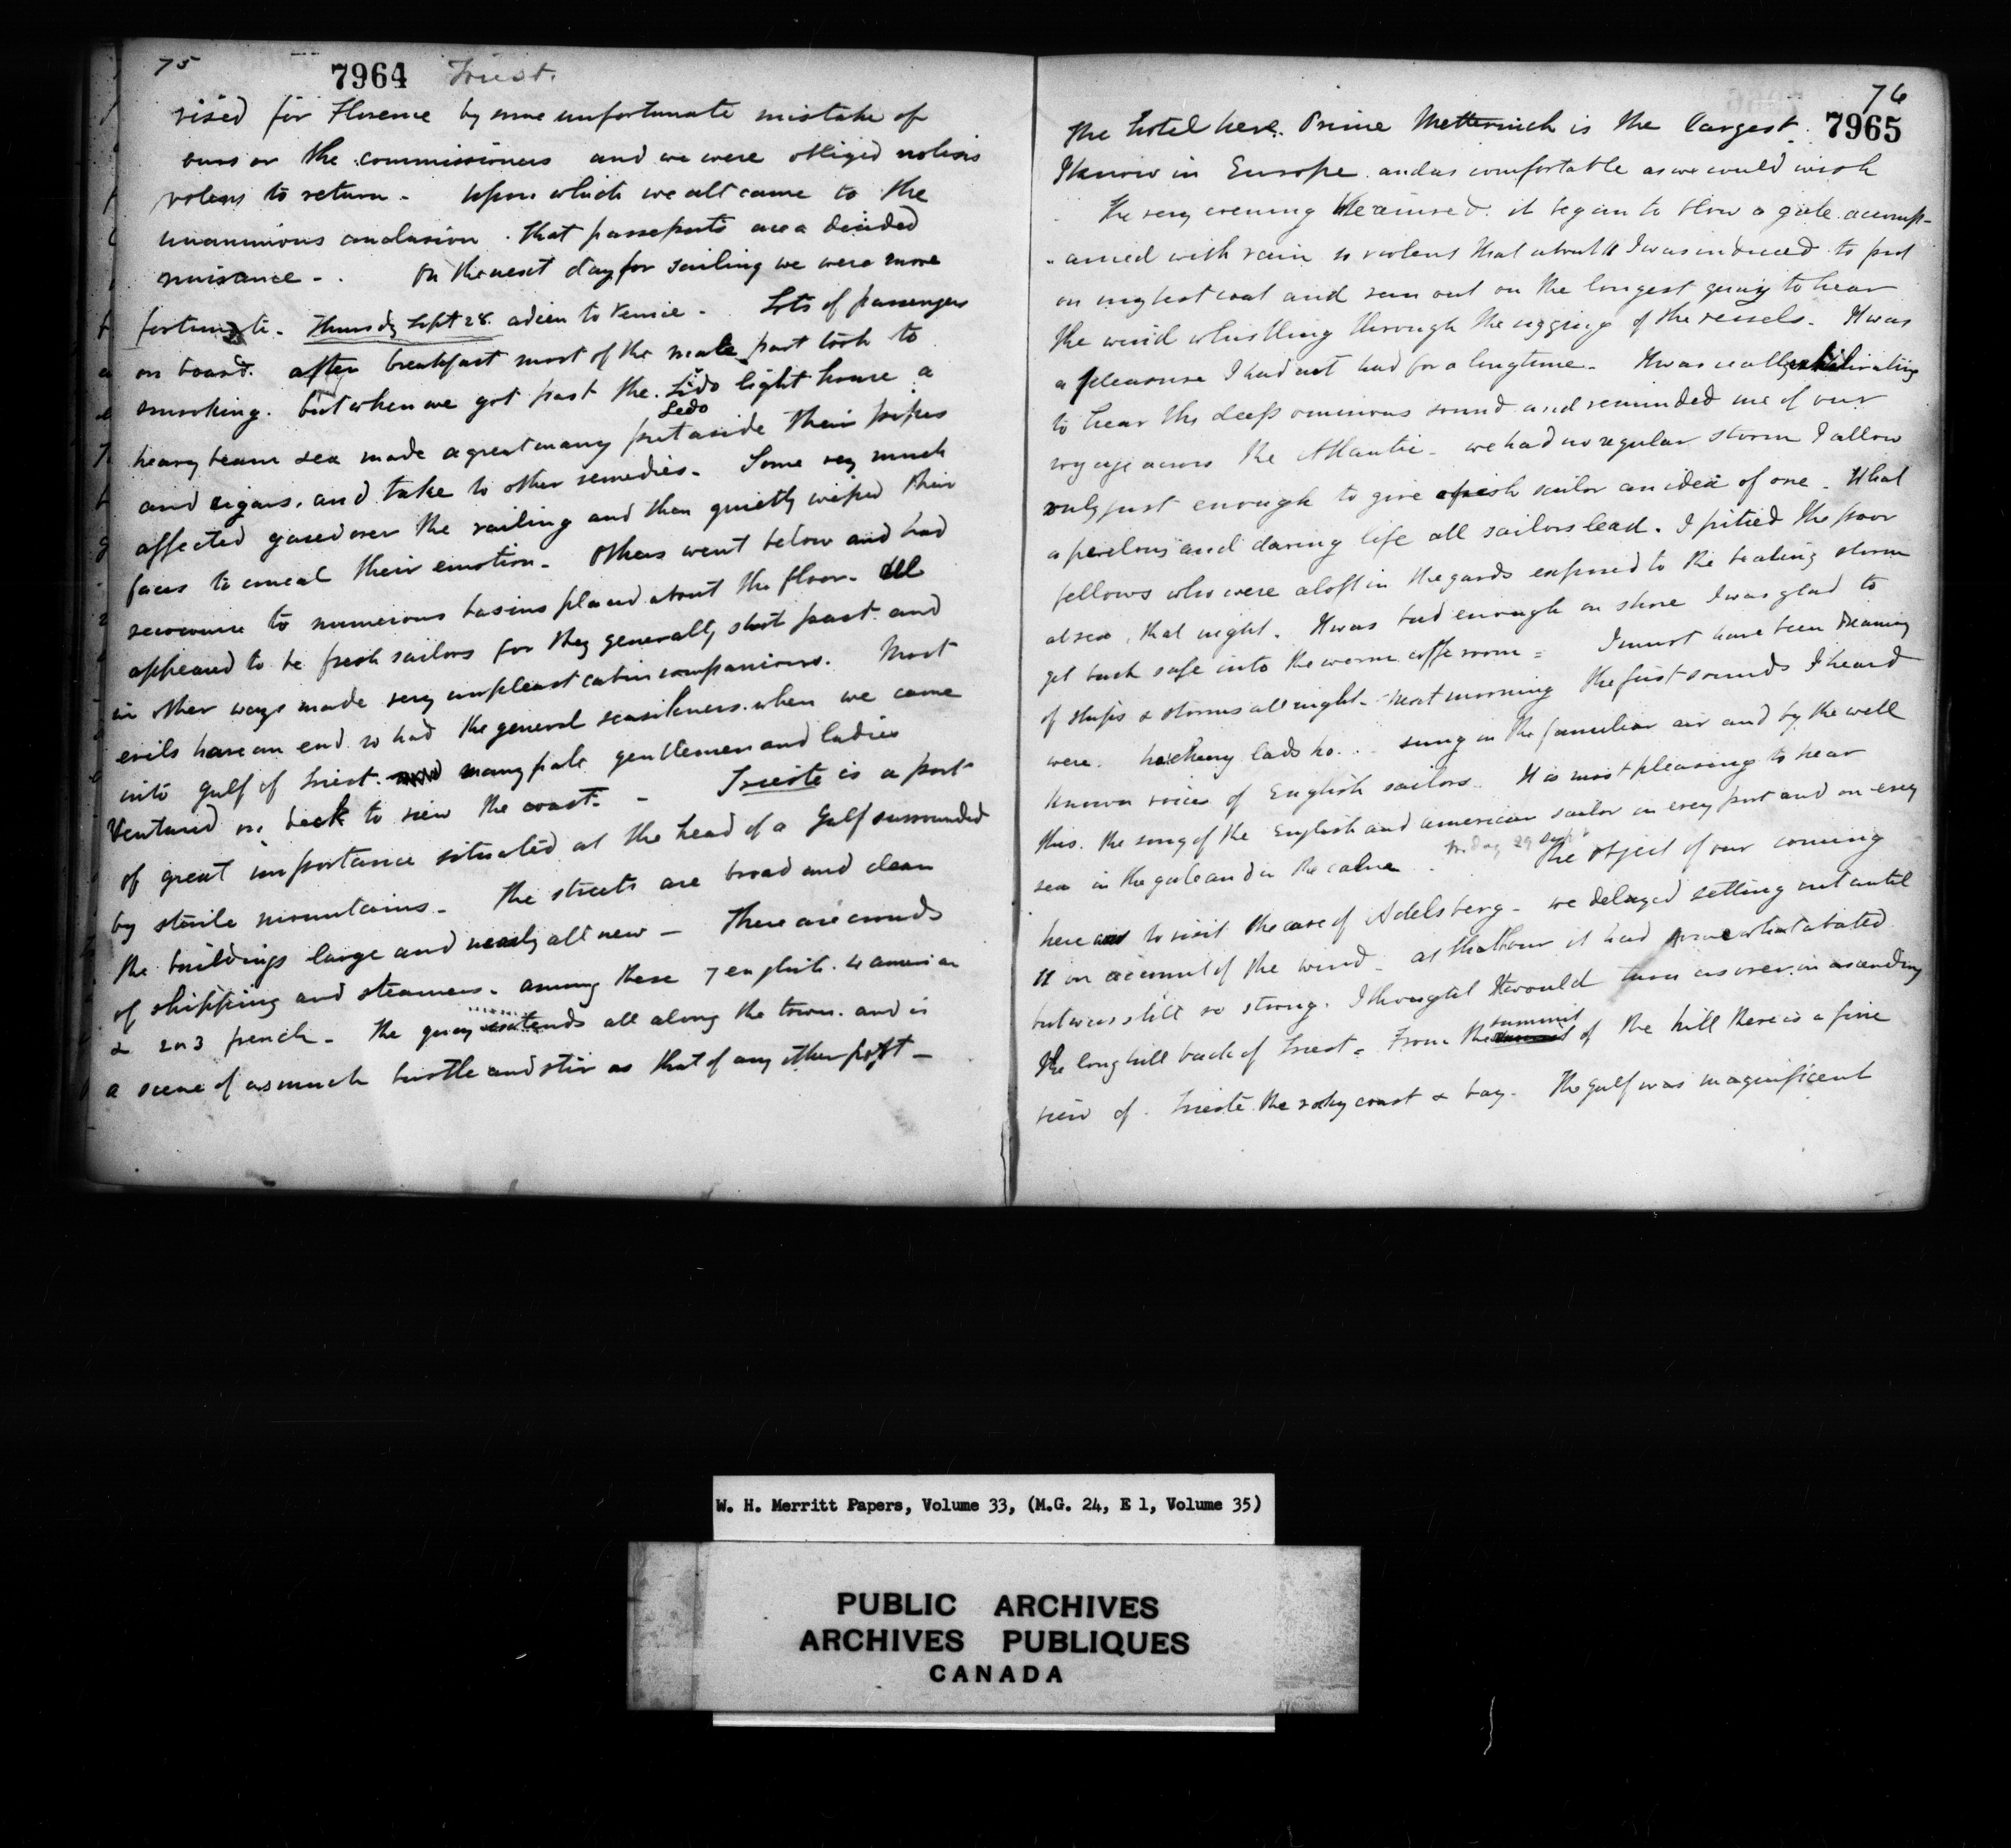 75
7964 Triest.
vised for Florence by some unfortunate mistake of
ours or the commissioners and we were obliged nolens
volens to return - Upon which we all came to the
unanimous conclusion that passports are a decided
nuisance - . On the next day for sailing we were more
fortunate. Thursdy Sept 28. adieu to Venice - Lots of passengers
on board. after breakfast most of the male part took to
smoking. but when we got past the Lido light house a
Ledo
heavy beam sea made a great many put aside their pipes
and cigars. and take to other remedies - Some very much
affected gazed over the railing and then quietly wiped their
faces to conceal their emotion - Others went below and had
recourse to numerous basins placed about the floor - All
appeared to be fresh sailors for they generally shot past and
in other ways made very unpleast cabin companions. Most
evils have an end so had the general seasikness. when we came
into gulf of Triest. many pale gentlemen and ladies
Ventured on deck to view the coast - - Trieste is a port
of great importance situated at the head of a Gulf surrounded
by sterile mountains - The streets are broad and clean
the buildings large and nearly all new - There are crowds
of shipping and steamers - among these 7 english. 4 american
& 2 or 3 french - The quay extends all along the town. and is
a scene of as much bustle and stir as that of any other port -
76
7965
The hotel here. Prince Metternich is the largest.
I know in Europe and as comfortable as we could wish
The very evening We arrived. it began to blow a gale accomp-
-anied with rain so violent that about 11 I was induced to put
on my best coat and run out on the longest quay to hear
the wind whistling through the rigging of the vessels - It was
a pleasure I had not had for a long time - It was really exhilirating
to hear the deep ominous sound and reminded me of our
voyage across the Atlantic - we had no regular storm I allow
only just enough to give a fresh sailor an idea of one - What
a perelous and daring life all sailors lead. I pitied the poor
fellows who were aloft in the yards exposed to the beating storm
at sea, that night. It was bad enough on shore I was glad to
get back safe into the warm coffe room = I must have been dreaming
of ships & storms all night - Next morning the first sounds I heard
were. ho cheery lads ho... sung in the familiar air and by the well
known voices of English sailors. It is most pleasing to hear
this. the song of the English and american sailor in every port and on every
sea in the gale and in the calm . Friday 29 Sept The object of our coming
here was to visit the cave of Adelsberg - we delayed setting out until
11 on account of the wind - at that hour it had somewhat abated
but was still so strong. I thought It would turn us over in ascending
the long hill back of Triest = From the summit of the hill there is a fine
view of Trieste the rocky coast & bay - The gulf was magnificent
W. H. Merritt Papers, Volume 33, (M.G. 24, E 1, Volume 35)
PUBLIC ARCHIVES
ARCHIVES PUBLIQUES
CANADA